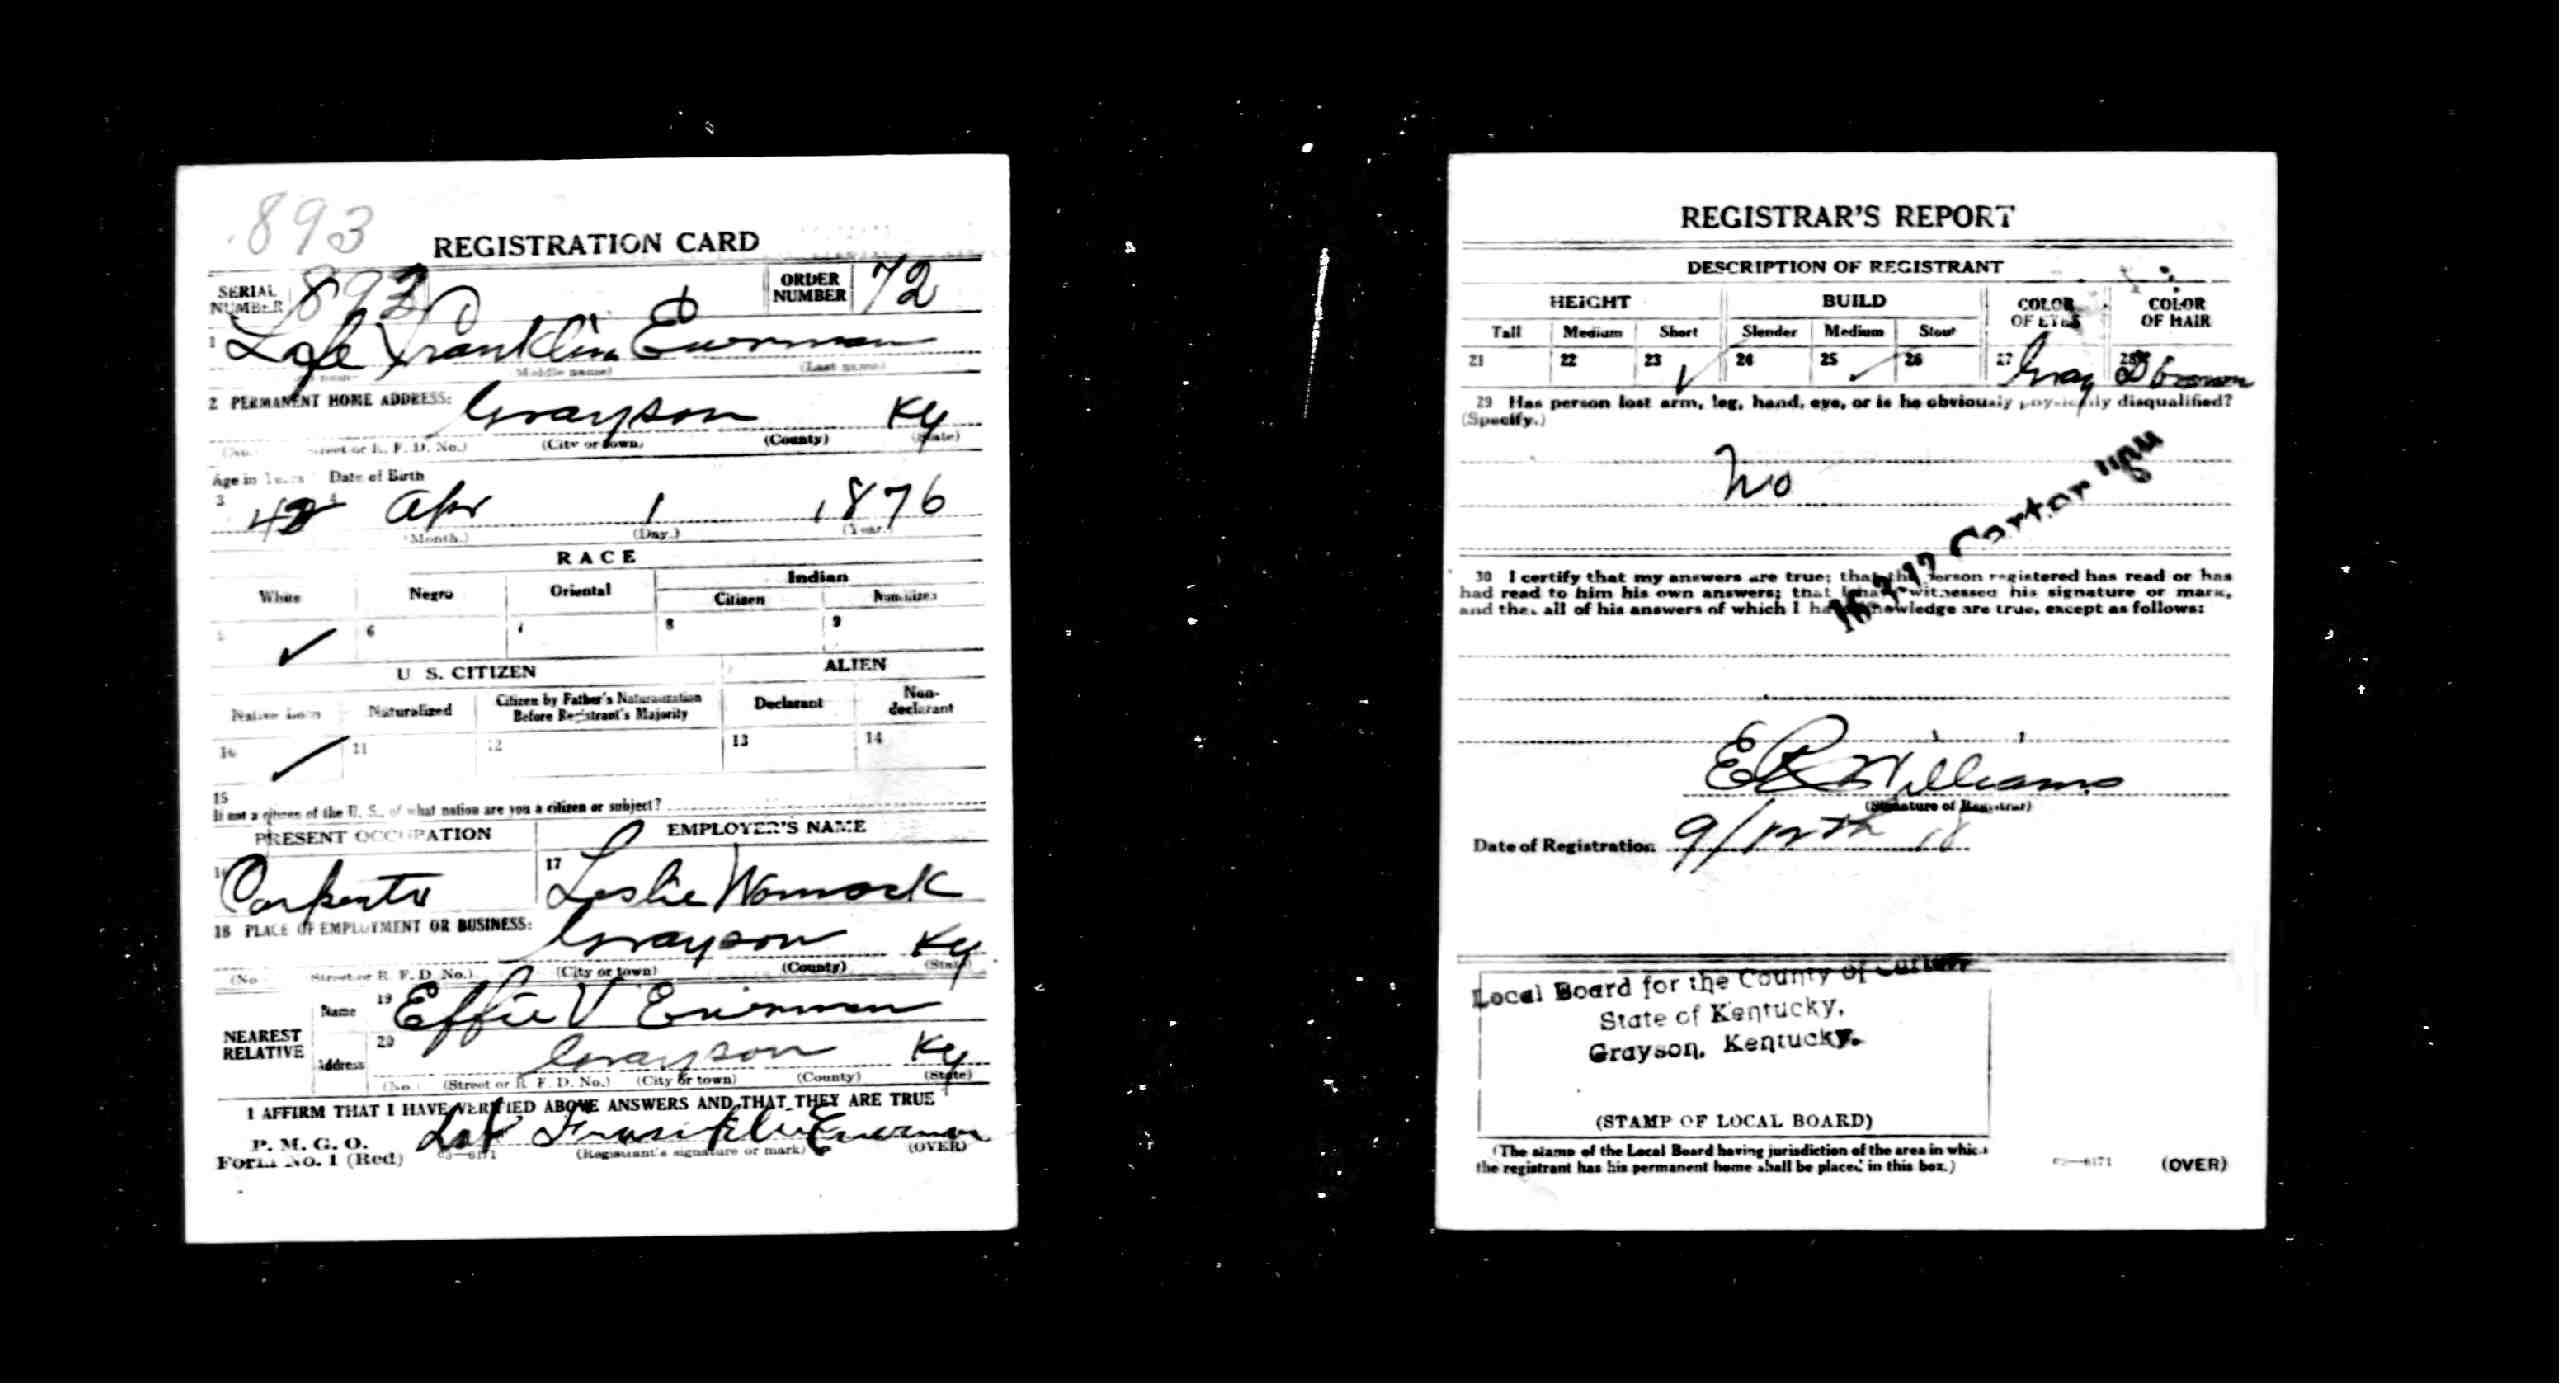 893
REGISTRATION CARD
SERIAL NUMBER 893 ORDER NUMBER 72
1 Lafe Franklin Everman
(Middle name) (Last name)
2 PERMANENT HOME ADDRESS: Grayson Ky
(No.) (Street or R. F. D. No.) (City or town) (County) (State)
Age in Years Date of Birth
3 42 4 Apr 1 1876
(Month.) (Day.) (Year.)
RACE
White Negro Oriental Indian
Citizen Noncitizen
5 ✓ 6 7 8 9
U. S. CITIZEN ALIEN
Native Born Naturalized Citizen by Father's Naturalization Before Registrant's Majority Declarant Non-declarant
10 ✓ 11 12 13 14
15
If not a citizen of the U. S., of what nation are you a citizen or subject?
PRESENT OCCUPATION EMPLOYER'S NAME
16 Carpenter 17 Leslie Womack
18 PLACE OF EMPLOYMENT OR BUSINESS: Grayson Ky
(No.) (Street or R. F. D. No.) (City or town) (County) (State)
NEAREST RELATIVE Name 19 Effie V Everman
Address 20 Grayson Ky
(No.) (Street or R. F. D. No.) (City or town) (County) (State)
I AFFIRM THAT I HAVE VERIFIED ABOVE ANSWERS AND THAT THEY ARE TRUE
P. M. G. O.
Form No. 1 (Red) 03—6171 Franklin Everman
(Registrant's signature or mark) (OVER)
REGISTRAR'S REPORT
DESCRIPTION OF REGISTRANT
HEIGHT BUILD COLOR OF EYES COLOR OF HAIR
Tall Medium Short Slender Medium Stout
21 22 23 ✓ 24 25 ✓ 26 27 Gray 28 D brown
29 Has person lost arm, leg, hand, eye, or is he obviously physically disqualified?
(Specify.)
No
16 2 17 Carter
30 I certify that my answers are true; that the person registered has read or has
had read to him his own answers; that I have witnessed his signature or mark,
and that all of his answers of which I have knowledge are true, except as follows:
E R Williams
(Signature of Registrar)
Date of Registration 9/12th 18
Local Board for the County of Carter
State of Kentucky,
Grayson, Kentucky.
(STAMP OF LOCAL BOARD)
(The stamp of the Local Board having jurisdiction of the area in which
the registrant has his permanent home shall be placed in this box.)
03—6171 (OVER)